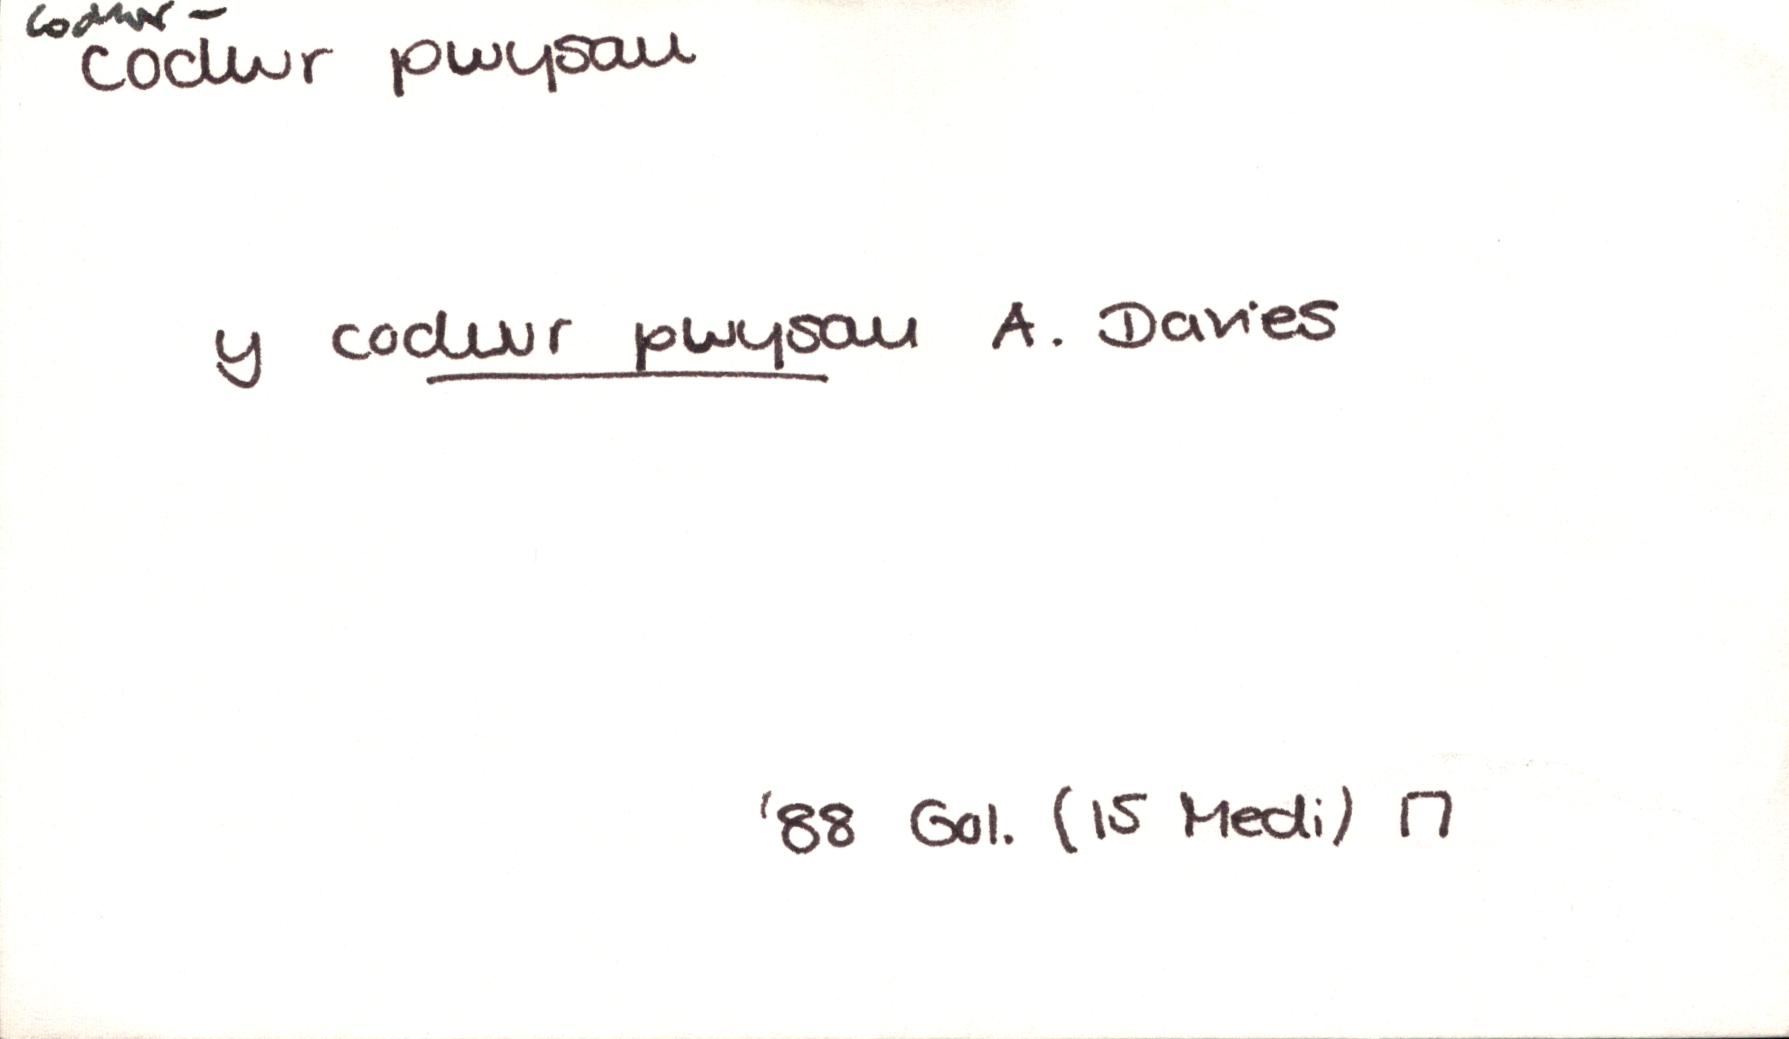 codwr –
codwr pwysau
y codwr pwysau A. Davies
'88 Gol. (15 Medi) 17